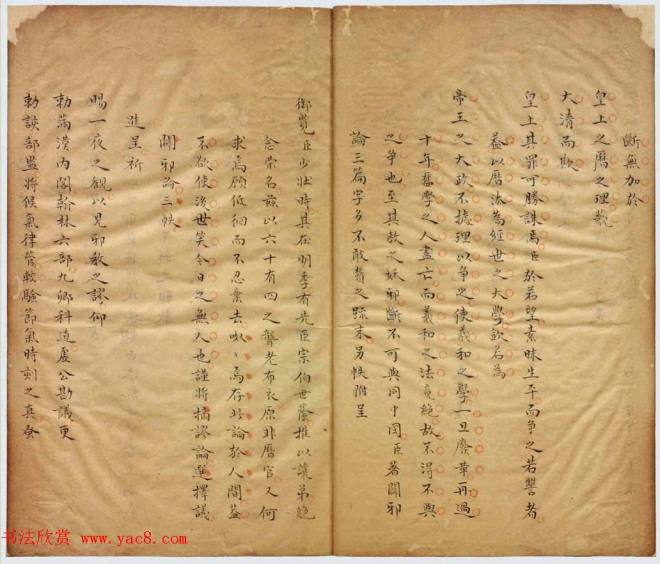 斷無加於
皇上之曆之理哉
大清而欺
皇上其罪可勝誅焉臣於若望素昧生平而爭之若讐者
益以曆法為經世之大學欽若為
帝王之大政不據理以爭之使羲和之學一旦廢棄再過
十年舊學之人盡亡而羲和之法竟絕故不得不與
之爭也至其教之妖邪斷不可與同中國臣著闢邪
論三篇字多不敢勦之疏末另帙附呈
御覽臣少壯時其在明季有先臣宗伯世蔭推以讓弟絕
念榮名茲以六十有四之聾老布衣原非曆官又何
求焉顧低徊而不忍棄去呶呶焉存此論於人間益
不欲使後世笑今日之無人也謹將摘謬論選擇議
闢邪論三帙
進呈祈
賜一夜之觀以見邪教之謬仰
勅滿漢內閣翰林六部九卿科道虛公勘議更
勅該部監將候氣律管較驗節氣時刻之真
书法欣赏 www.yac8.com